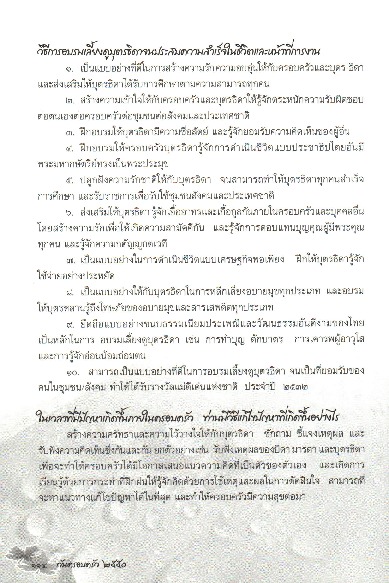 วิธีการอบรมเลี้ยงดูบุตรธิดาจนประสบความสำเร็จในชีวิตและหน้าที่การงาน
๑. เป็นแบบอย่างที่ดีในการสร้างความรักความอบอุ่นให้กับครอบครัวและบุตร ธิดา
และส่งเสริมให้บุตรธิดาได้รับการศึกษาตามความสามารถทุกคน
๒. สร้างความเข้าใจให้กับครอบครัวและบุตรธิดาให้รู้จักตระหนักความรับผิดชอบ
ต่อตนเองต่อครอบครัวต่อชุมชนต่อสังคมและประเทศชาติ
๓. ฝึกอบรมให้บุตรธิดามีความซื่อสัตย์ และรู้จักยอมรับความคิดเห็นของผู้อื่น
๔. ฝึกอบรมให้ครอบครัวบุตรธิดารู้จักการดำเนินชีวิตแบบประชาธิปไตยอันมี
พระมหากษัตริย์ทรงเป็นพระประมุข
๕. ปลูกฝังความรักชาติให้กับบุตรธิดา จนสามารถทำให้บุตรธิดาทุกคนสำเร็จ
การศึกษา และรับราชการเพื่อรับใช้ชุมชนสังคมและประเทศชาติ
๖. ส่งเสริมให้บุตรธิดา รู้จักเอื้ออาทรและเกื้อกูลกันภายในครอบครัวและบุคคลอื่น
โดยสร้างความรักเพื่อให้เกิดความสามัคคีกัน และรู้จักการตอบแทนบุญคุณผู้มีพระคุณ
ทุกคน และรู้จักความกตัญญูกตเวที
๗. เป็นแบบอย่างในการดำเนินชีวิตแบบเศรษฐกิจพอเพียง ฝึกให้บุตรธิดารู้จัก
ใช้จ่ายอย่างประหยัด
๘. เป็นแบบอย่างให้กับบุตรธิดาในการหลีกเลี่ยงอบายมุขทุกประเภท และอบรม
ให้บุตรหลานรู้ถึงโทษภัยของอบายมุขและสารเสพติดทุกประเภท
๙. ยึดถือแบบอย่างขนบธรรมเนียมประเพณีและวัฒนธรรมอันดีงามของไทย
เป็นหลักในการ อบรมเลี้ยงดูบุตรธิดา เช่น การทำบุญ ตักบาตร การเคารพผู้อาวุโส
และการรู้จักอ่อนน้อมถ่อมตน
๑๐. สามารถเป็นแบบอย่างที่ดีในการอบรมเลี้ยงดูบุตรธิดา จนเป็นที่ยอมรับของ
คนในชุมชน/สังคม ทำให้ได้รับรางวัลแม่ดีเด่นแห่งชาติ ประจำปี ๒๕๓๒
ในเวลาที่มีปัญหาเกิดขึ้นภายในครอบครัว ท่านมีวิธีแก้ไขปัญหาที่เกิดขึ้นอย่างไร
สร้างความศรัทธาและความไว้วางใจให้กับบุตรธิดา ซักถาม ชี้แจงเหตุผล และ
รับฟังความคิดเห็นซึ่งกันและกัน ยกตัวอย่างเช่น รับฟังเหตุผลของบิดา มารดา และบุตรธิดา
เพื่อจะทำให้ครอบครัวได้มีโอกาสเสนอแนวความคิดที่เป็นตัวของตัวเอง และเกิดการ
เรียนรู้ด้วยการกระทำที่ฝึกฝนให้รู้จักคิดด้วยการใช้เหตุและผลในการตัดสินใจ สามารถที่
จะหาแนวทางแก้ไขปัญหาได้ในที่สุด และทำให้ครอบครัวมีความสุขต่อมา
วันครอบครัว ๒๕๕๐